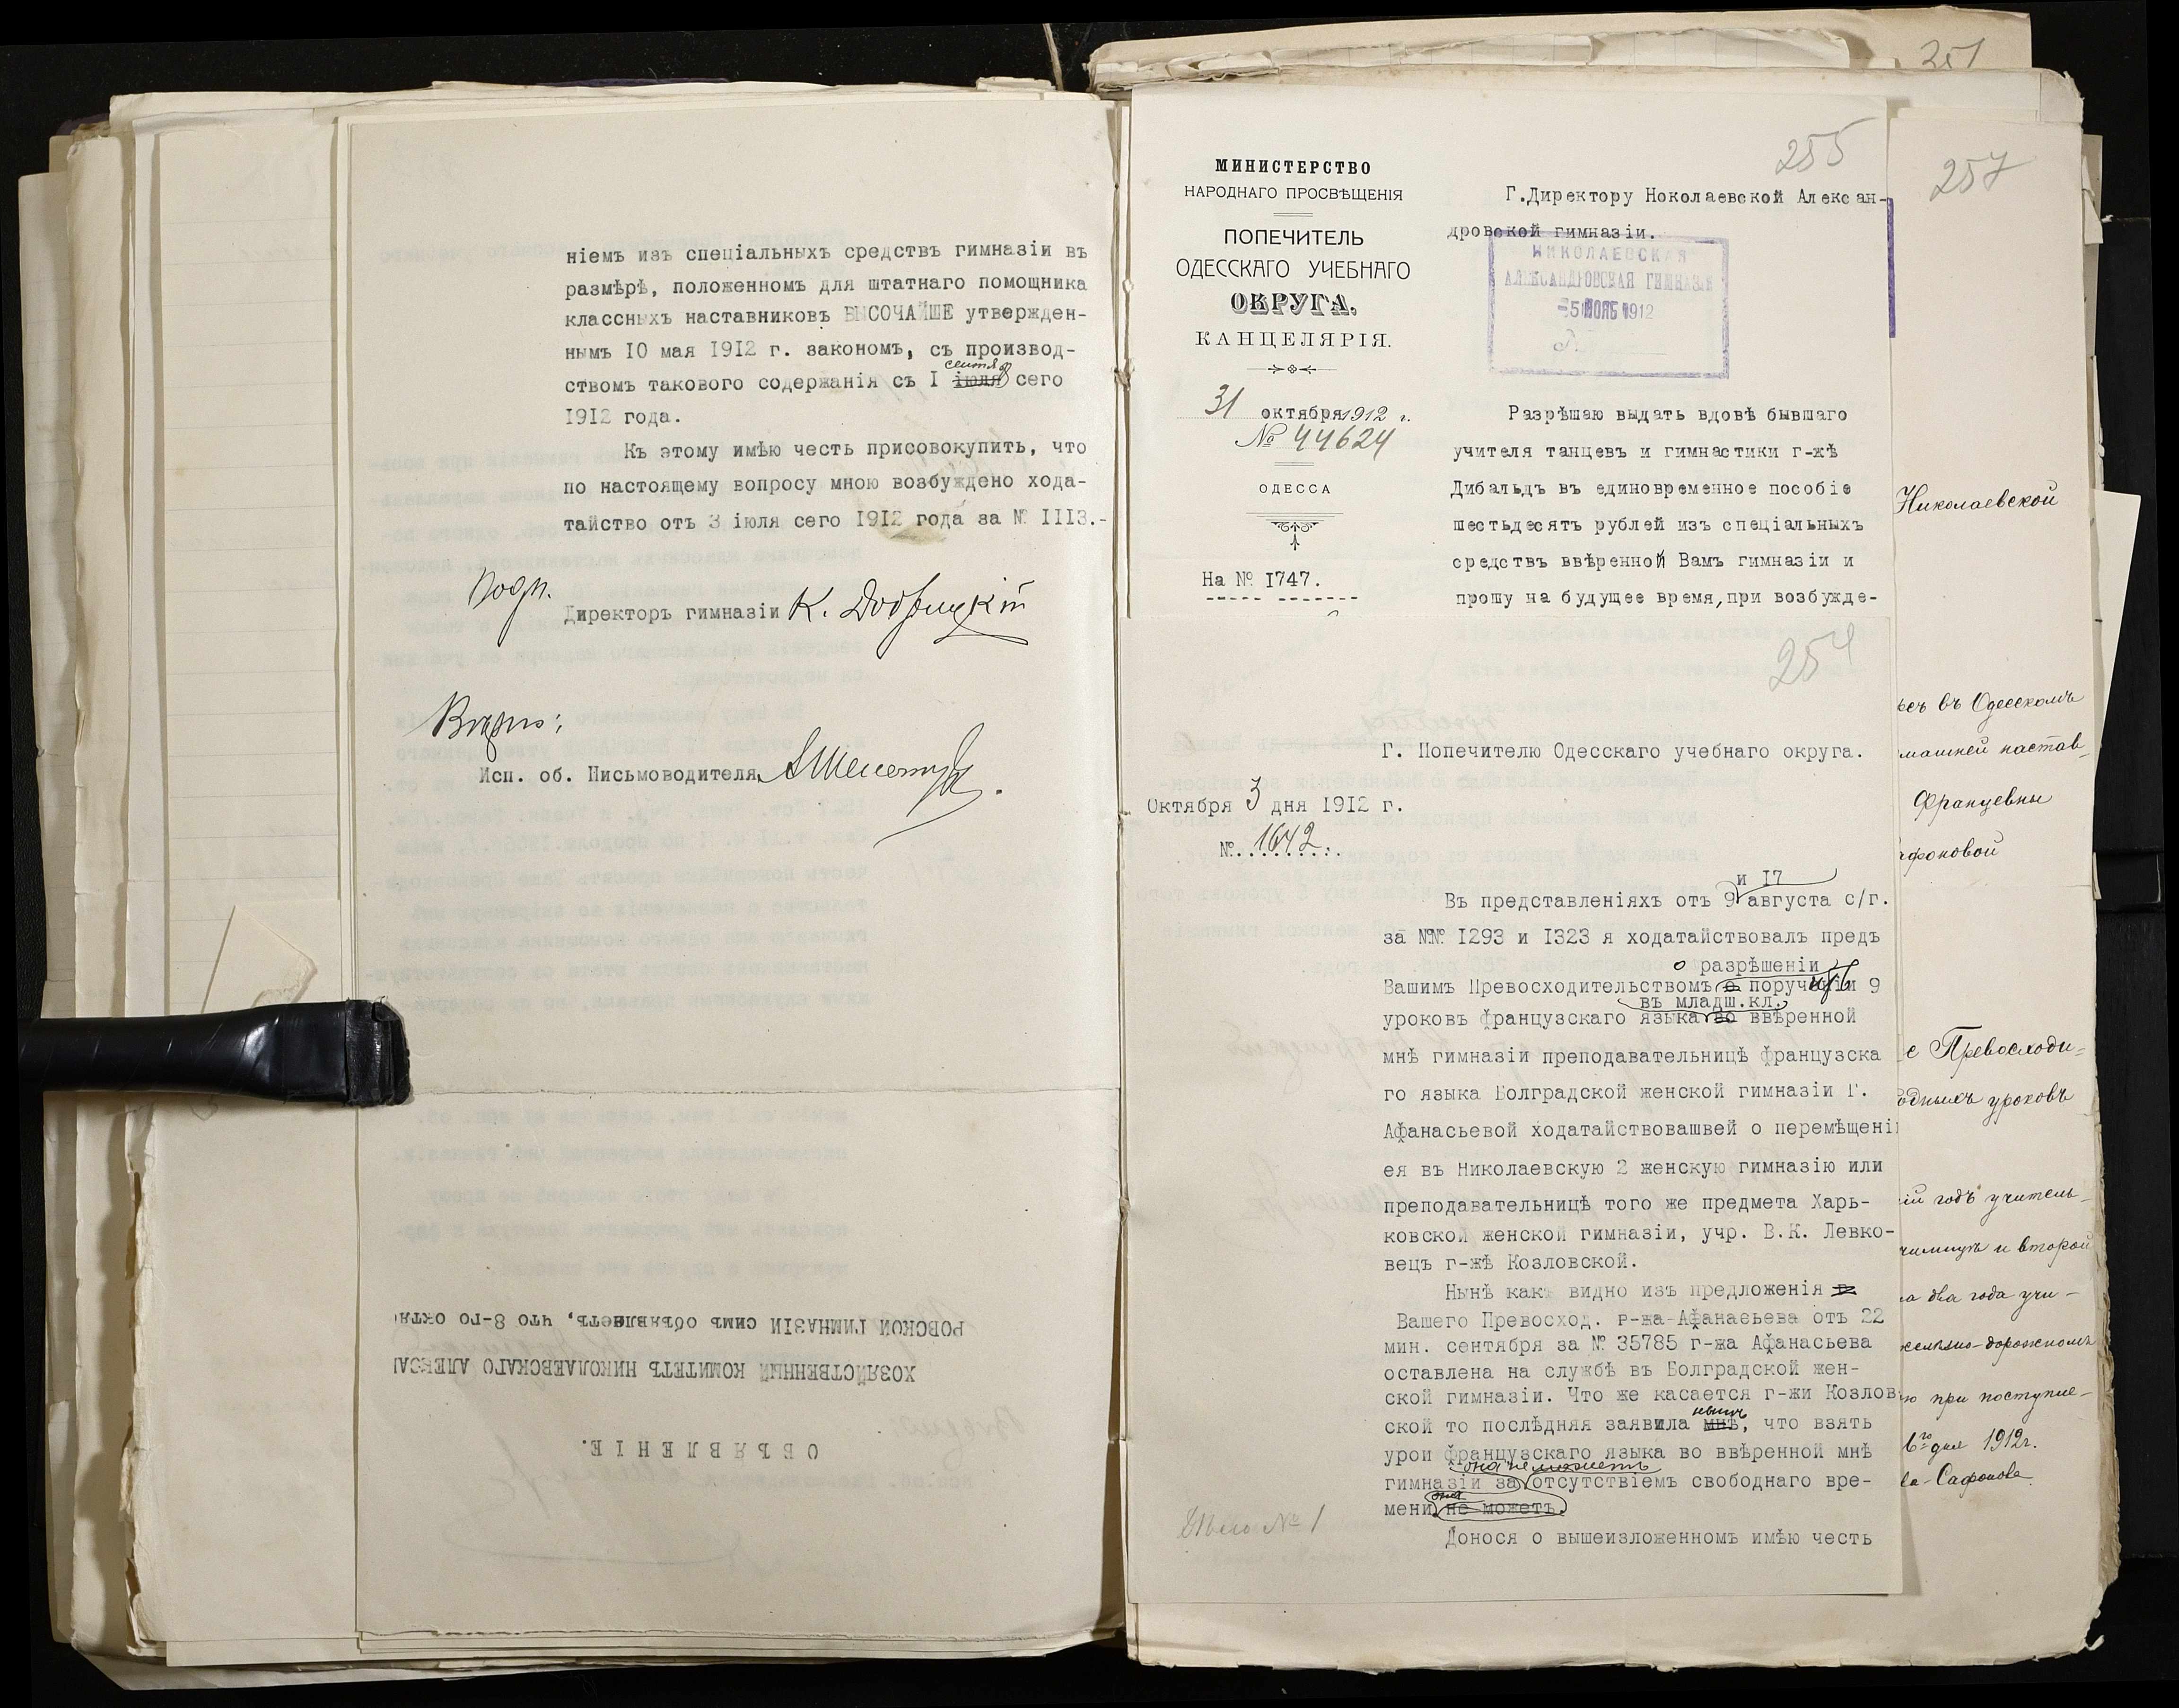 ніемъ изъ спеціальныхъ средствъ гимназіи въ
размѣрѣ, положенномъ для штатнаго помощника
классныхъ наставниковъ ВЫСОЧАЙШЕ утвержден-
нымъ 10 мая 1912 г. закономъ, съ производ-
сентяб
ствомъ такового содержанія съ I іюля сего
1912 года.
Къ этому имѣю честь присовокупить, что
по настоящему вопросу мною возбуждено хода-
тайство отъ 3 іюля сего 1912 года за № 1113.-
Подп.
Директоръ гимназіи К. Добрицкій
Вѣрно:
Исп. об. Письмоводителя
ОБЪЯВЛЕНІЕ.
ХОЗЯЙСТВЕННЫЙ КОМИТЕТЪ НИКОЛАЕВСКАГО АЛЕКСАН
РОВСКОЙ ГИМНАЗІИ симъ объявляетъ, что 8-го октя
251
255
МИНИСТЕРСТВО
НАРОДНАГО ПРОСВѢЩЕНІЯ
ПОПЕЧИТЕЛЬ
ОДЕССКАГО УЧЕБНАГО
ОКРУГА.
КАНЦЕЛЯРІЯ.
31 октября 1912 г.
№ 44624
ОДЕССА
На № 1747.
Г.Директору Ноколаевской Алексан-
дровской гимназіи.
НИКОЛАЕВСКАЯ
АЛЕКСАНДРОВСКАЯ ГИМНАЗІЯ
-5 НОЯБ 1912
Разрѣшаю выдать вдовѣ бывшаго
учителя танцевъ и гимнастики г-жѣ
Дибальдъ въ единовременное пособіе
шестьдесятъ рублей изъ спеціальныхъ
средствъ ввѣренной Вамъ гимназіи и
прошу на будущее время,при возбужде-
254
Г. Попечителю Одесскаго учебнаго округа.
Октября 3 дня 1912 г.
№ 1642
и 17
Въ представленіяхъ отъ 9 августа с/г.
за №№ 1293 и 1323 я ходатайствовалъ предъ
о разрѣшеніи
Вашимъ Превосходительствомъ о порученіи 9
въ младш.кл.
уроковъ французскаго языка во ввѣренной
мнѣ гимназіи преподавательницѣ французска
го языка Болградской женской гимназіи Г.
Афанасьевой ходатайствовашвей о перемѣщені
ея въ Николаевскую 2 женскую гимназію или
преподавательницѣ того же предмета Харь-
ковской женской гимназіи, учр. В.К. Левко-
вецъ г-жѣ Козловской.
Нынѣ какъ видно изъ предложенія
Вашего Превосход. г-жа Афанасьева отъ 22
мин. сентября за № 35785 г-жа Афанасьева
оставлена на службѣ въ Болградской жен-
ской гимназіи. Что же касается г-жи Козлов
нынѣ
ской то послѣдняя заявила мнѣ, что взять
урои французскаго языка во ввѣренной мнѣ
она не можетъ
гимназіи за отсутствіемъ свободнаго вре-
она
мени не можетъ.
Донося о вышеизложенномъ имѣю честь
Дѣло № 1
257
Николаевской
въ Одесскомъ
машней настав-
Францевны
афоновой
е Превосходи-
одныхъ уроковъ
ій годъ учитель-
и второй
а два года учи-
жельзно-дорожномъ
ю при поступле-
6го дня 1912г.
ва-Сафонова